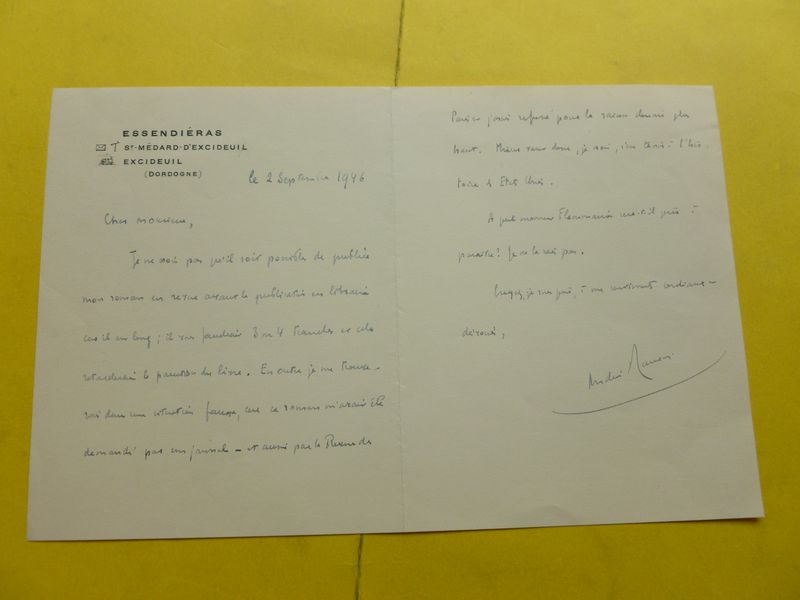 ESSENDIÉRAS
ST-MÉDARD-D'EXCIDEUIL
EXCIDEUIL
(DORDOGNE)
le 2 Septembre 1946
Cher Monsieur,
Je ne crois pas qu'il soit possible de publier
mon roman en revue avant la publication en librairie
car il est long ; il vous faudrait 3 ou 4 tranches et cela
retarderait la parution du livre. En outre je me trouve-
rais dans une situation fausse, car ce roman m'avait été
demandé par un journal — et aussi par la Revue de
Paris et j'avais refusé pour la raison donnée plus
haut. Mieux vaut donc, je crois, s'en tenir à l'His-
toire des Etats Unis.
A quel moment serait-il prêt à
paraître ? Je ne le sais pas.
Croyez, je vous prie, à mes sentiments cordialement
dévoués,
André Maurois